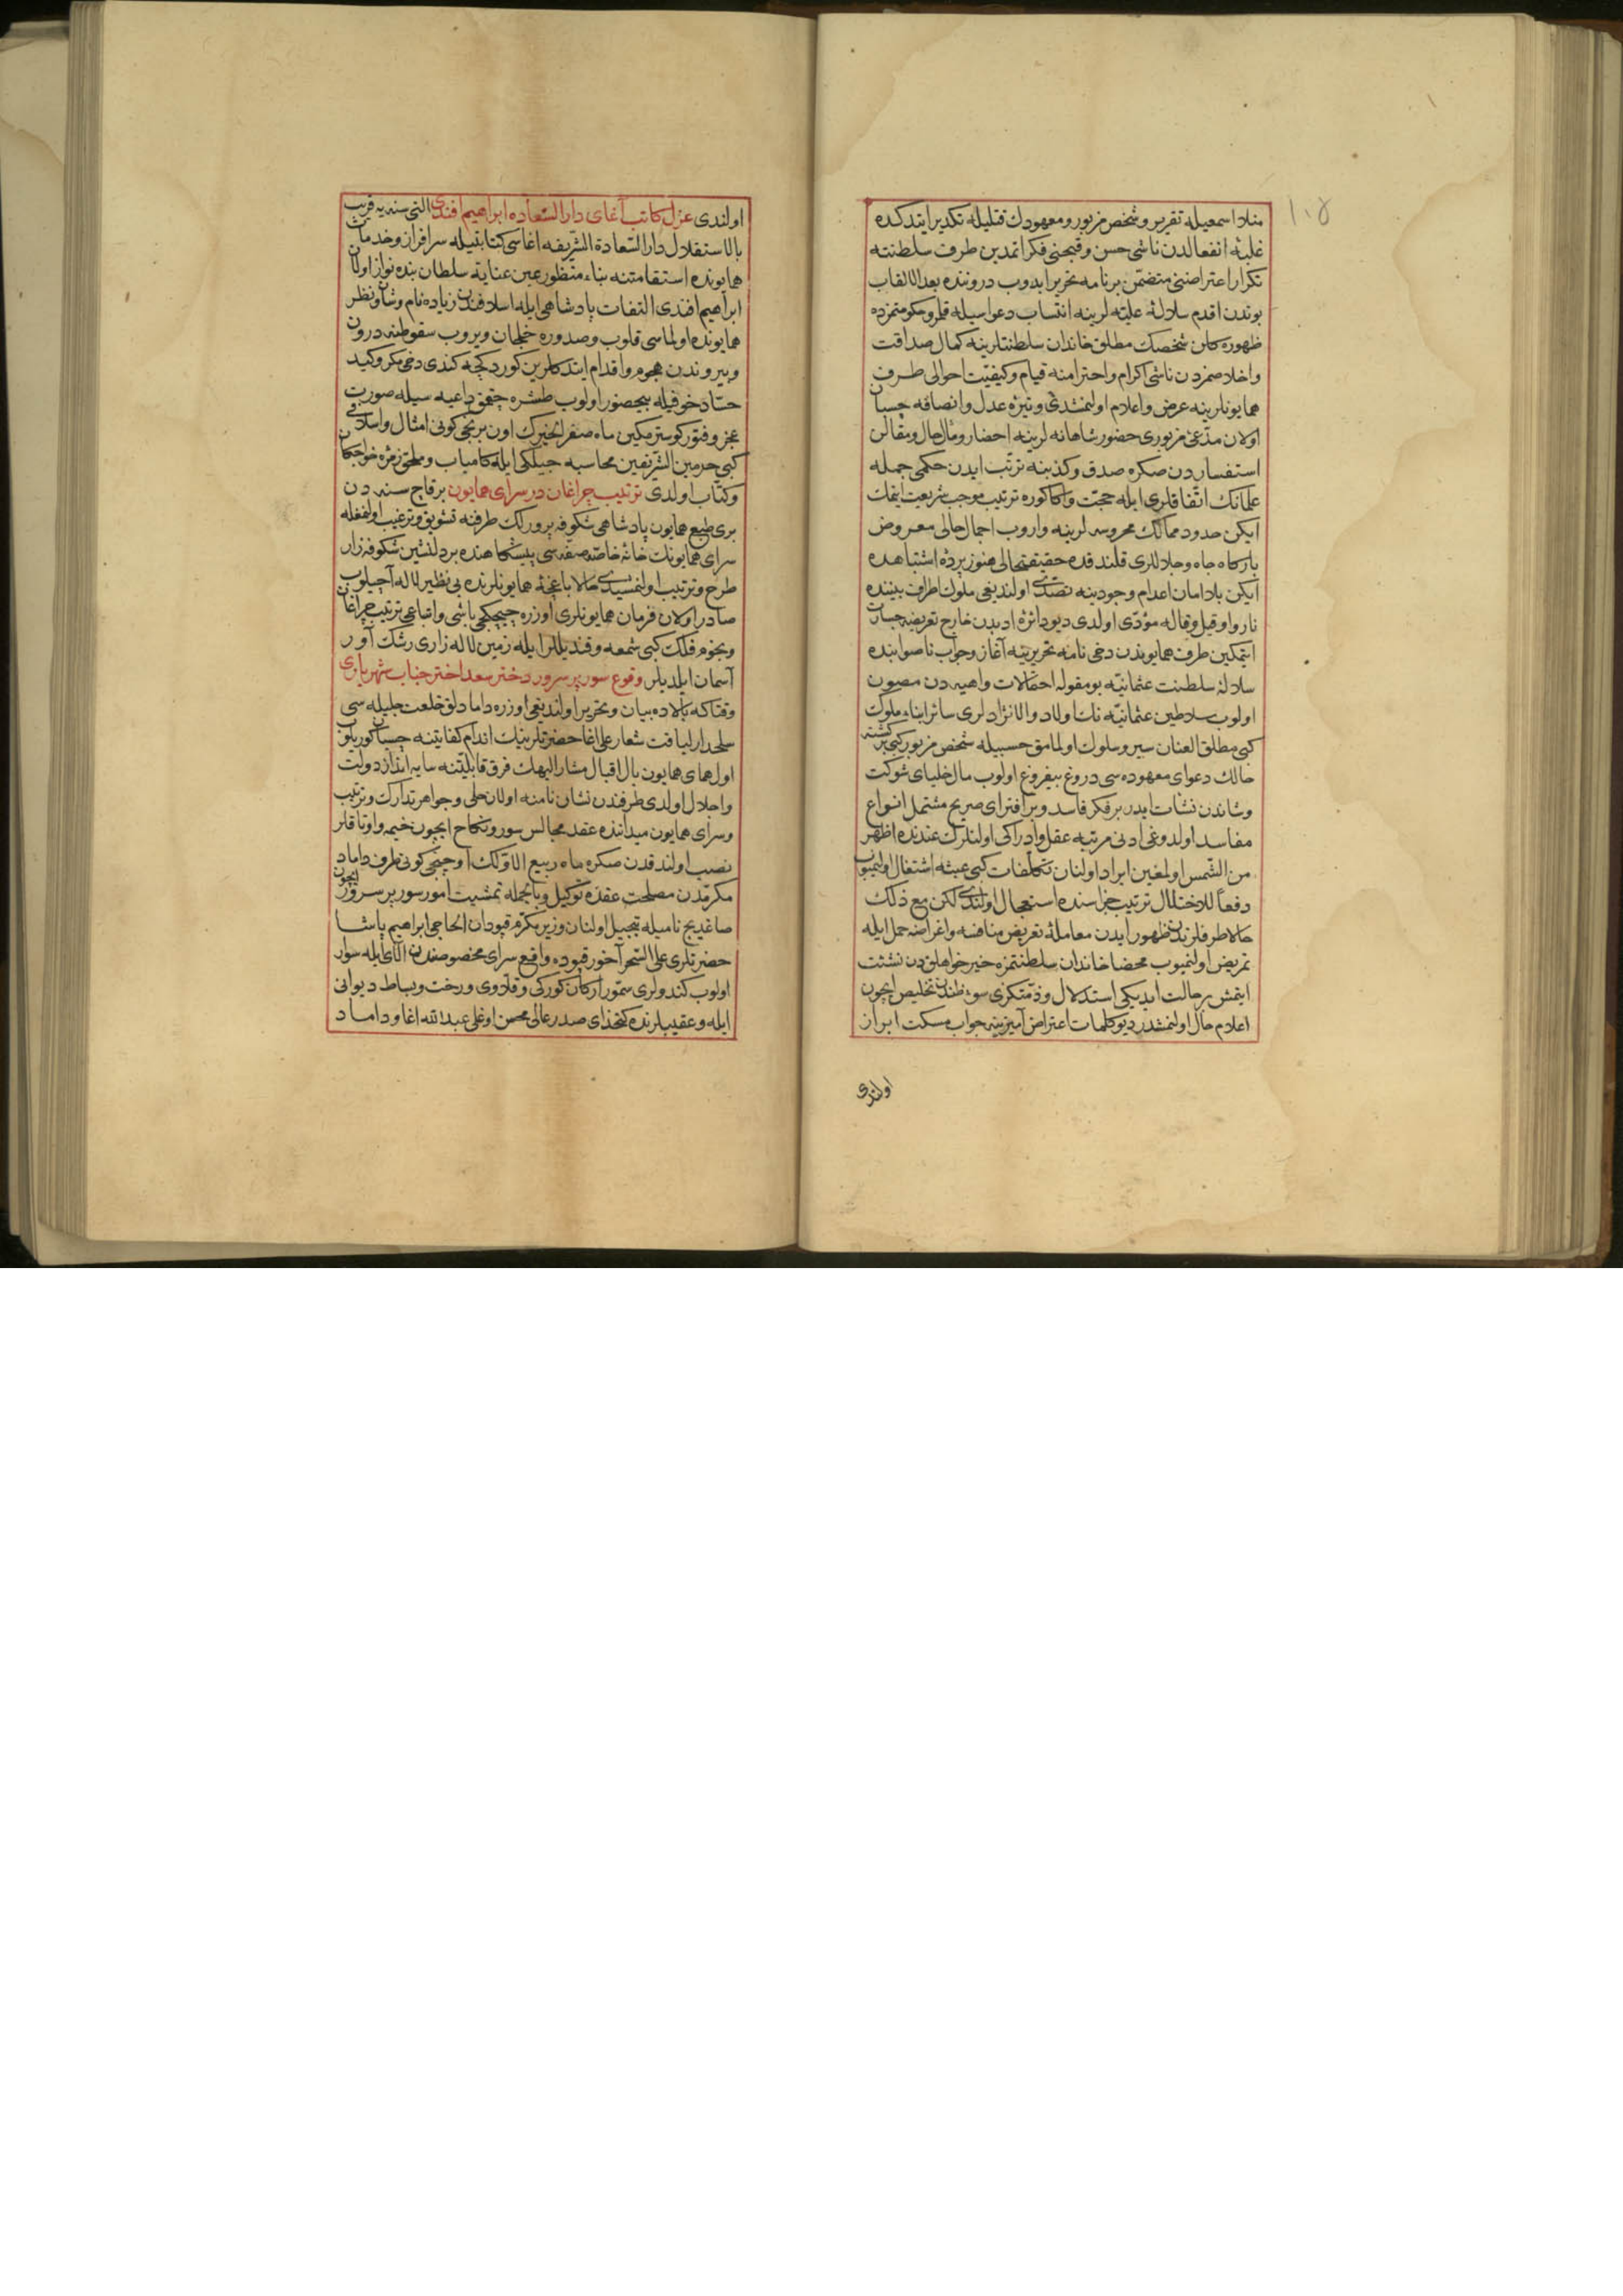 ١٠٥
منلا اسمعیله تقریر و شخص مزبور و معهودك قتلیله تكدیر ایتدكده
غلبهٔ انفعالدن ناشی حسن و قبحنی فكر اتمدین طرف سلطنته
تكرار اعتراضنی متضمن بر نامه تحریر ایدوب دروننده بعد الالقاب
بوندن اقدم سلالهٔ علیه لرینه انتساب دعواسیله قلمرو حكومتمزده
ظهوره كلن شخصك مطلق خاندان سلطنتلرینه كمال صداقت
و اخلاصمزدن ناشی اكرام و احترامنه قیام و كیفیت احوالی طرف
همایونلرینه عرض و اعلام اولنمشدی وتیرهٔ عدل و انصافه چسبان
اولان مدعئ مزبوری حضور شاهانه لرینه احضار و مآل حال و مقالن
استفساردن صكره صدق و كذبنه ترتب ایدن حكمی جمله
علمانك اتفاقلری ایله حجت و اكا كوره ترتیب موجب شریعت ایتمك
ایكن حدود ممالك محروسه لرینه واروب اجمال حالی معروض
باركاه جاه و جلاللری قلندقده حقیقت حالی هنوز پردهٔ اشتباهده
ایكن بلا امان اعدام وجودینه تصدی اولندیغی ملوك اطراف بیننده
ناروا و قیل و قاله مؤدی اولدی دیو دائرهٔ ادبدن خارج تعریضه جسارت
ایتمكین طرف همایوندن دخی نامه تحریرینه آغاز و جواب ناصوابنده
سلالهٔ سلطنت عثمانیه بو مقوله احتمالات واهیه دن مصون
اولوب سلاطین عثمانیه نك اولاد والانژادلری سائر ابناء ملوك
كبی مطلق العنان سیر و سلوك اولمامق حسبیله شخص مزبور كبی بر كشته
حالك دعوای معهوده سی دروغ بیفروغ اولوب مال خلیای شوكت
و شاندن نشات ایدر بر فكر فاسد و بر افترای صریح مشتمل انواع
مفاسد اولدوغی ادنی مرتبه عقل و ادراكی اولنلرك عندنده اظهر
من الشمس اولمغین ایراد اولنان تكلفات كبی عبثه اشتغال اولنمیوب
دفعاً للاختلال ترتیب جزاسنده استعجال اولندی لكن مع ذلك
حالا طرفلرندن ظهور ایدن معاملهٔ تعریض منافسه و اغراضه حمل ایله
تمریض اولنمیوب محضا خاندان سلطنتمزه خیرخواهلقدن نشئت
ایتمش بر حالت ایدیكی استدلال و ذمتكزی سوء ظندن تخلیص ایچون
اعلام حال اولنمشدر دیو كلمات اعتراض آمیزینه جواب مسكت ابراز
اولندی
اولندی عزل كاتب آغای دار السعاده ابراهیم افندی التی سنه یه قریب
بالاستقلال دار السعادة الشریفه اغاسی كتابتیله سرافراز و خدمات
همایونده استقامتنه بناء منظور عین عنایة سلطان بنده نواز اولان
ابراهیم افندی التفات پادشاهی ایله اسلافندن زیاده نام و شان و نظر
همایونده اولماسی قلوب و صدوره خلجان ویروب سقوطنه درون
و بیروندن هجوم و اقدام ایتدكلرین كوردكجه كندی دخی مكر و كید
حساد خوفیله بیحضور اولوب طشره چقمق داعیه سیله صورت
عجز و فتور كوسترمكین ماه صفر الخیرك اون برنجی كونی امثال و اسلافی
كبی حرمین الشریفین محاسبه جیلكی ایله كامیاب و ملحق زمرهٔ خواجكان
و كتاب اولدی ترتیب چراغان در سرای همایون بر قاچ سنه دن
بری طبع همایون پادشاهی شكوفه پرورلك طرفنه تشویق و ترغیب اولنمغله
سرای همایونك خانهٔ خاصه صفه سی پیشكاهنده بر دلنشین شكوفه زار
طرح و ترتیب اولنمسیدی حالا باغچهٔ همایونلرنده بی نظیر لاله آچیلوب
صادر اولان فرمان همایونلری اوزره چیچكجی باشی و اتباعی ترتیب چراغان
و نجوم فلك كبی شمعه و قندیللر ایله زمین لاله زاری رشك آور
آسمان ایلدیلر وقوع سور پر سرور دختر سعد اختر جناب شهریاری
وقتاكه بالاده بیان و تحریر اولندیغی اوزره دامادلق خلعت جلیله سی
سلحدار لیاقت شعار علی اغا حضرتلرینك اندام كفایتنه چسپان كوریلوب
اول همای همایون بال اقبال مشار الیهك فرق قابلیتنه سایه انداز دولت
و اجلال اولدی طرفندن نشان نامنه اولان حلی و جواهر تدارك و ترتیب
و سرای همایون میداننده عقد مجالس سور و نكاح ایچون خیمه و اوتاقلر
نصب اولندقدن صكره ماه ربیع الاولك اوچنجی كونی طرف داماد
مكرمدن مصلحت عقده توكیل و بالجمله تمشیت امور سور پر سرور ایچون
صاغدیج نامیله تبجیل اولنان وزیر مكرم قپودان الحاجی ابراهیم پاشا
حضرتلری علی السحر آخور قپوده واقع سرای مخصوصندن الای ایله سوار
اولوب كندولری سمور اركان كوركی و قلاوی و رخت و بساط دیوانی
ایله و عقیبلرنده كتخدای صدر عالی محسن اوغلی عبد الله اغا و داماد